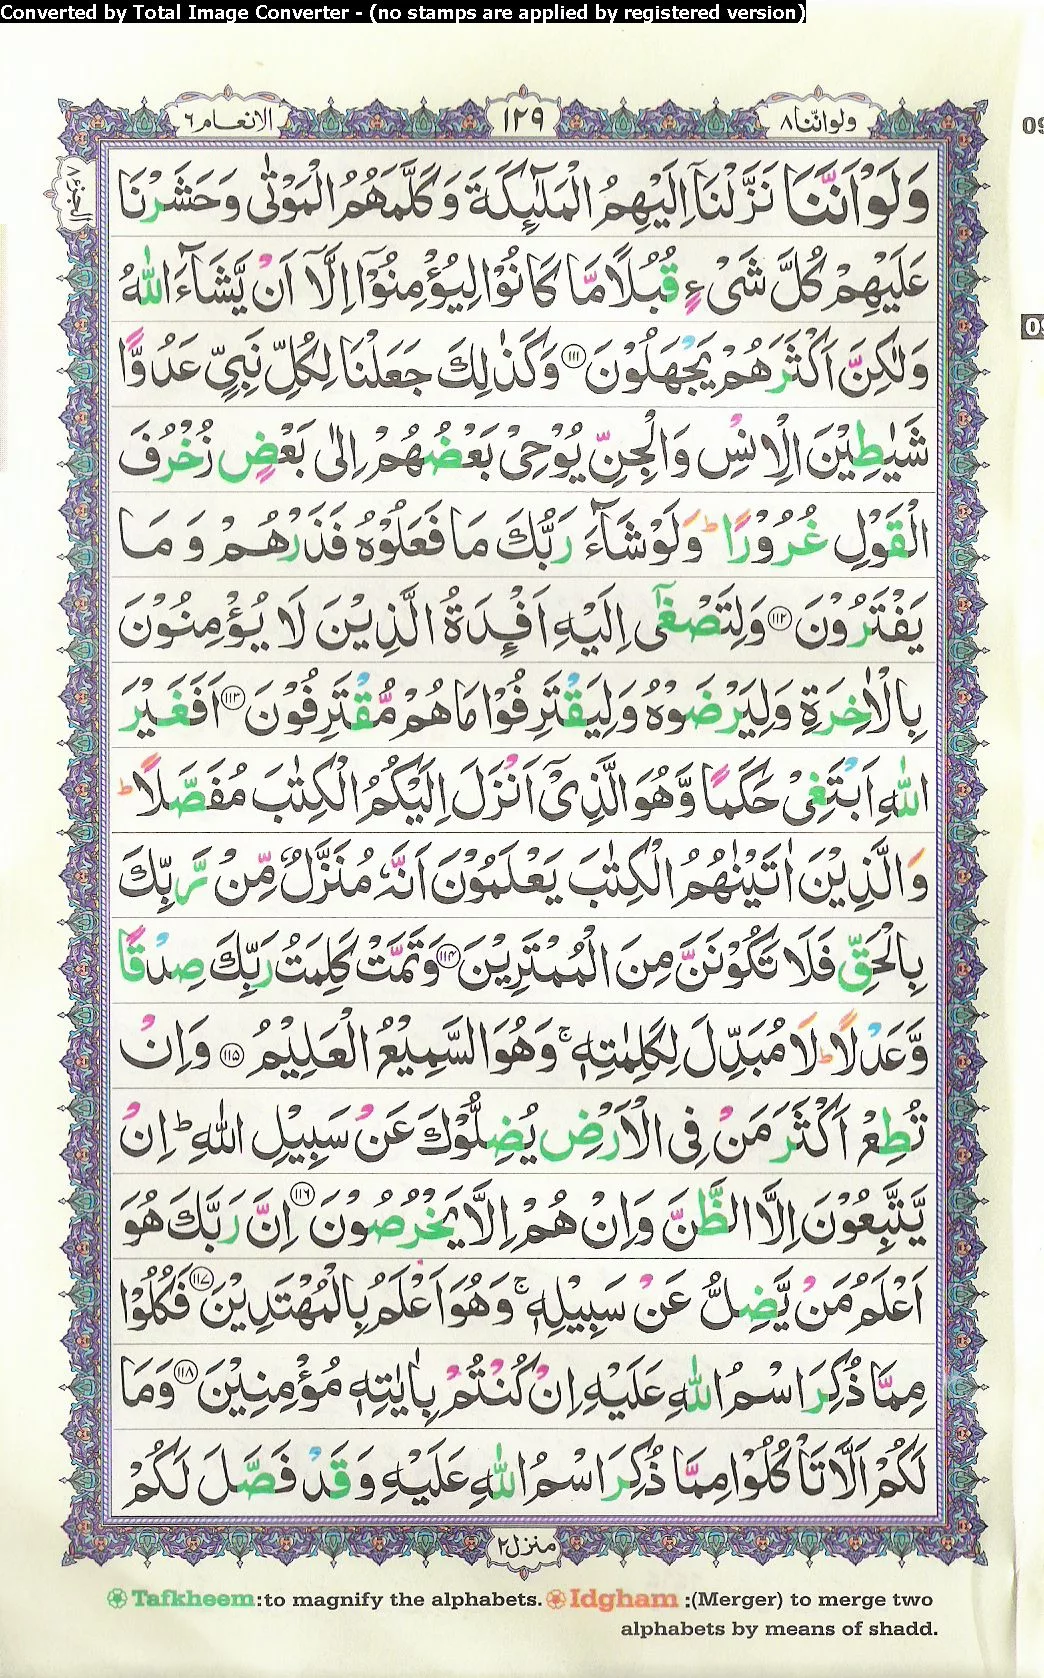 Converted by Total Image Converter - (no stamps are applied by registered version)
ولواننا ٨
١٢٩
الانعام ٦
الجزء ٨
وَلَوْ اَنَّنَا نَزَّلْنَاۤ اِلَيْهِمُ الْمَلٰٓئِكَةَ وَكَلَّمَهُمُ الْمَوْتٰى وَحَشَرْنَا
عَلَيْهِمْ كُلَّ شَىْءٍ قُبُلًا مَّا كَانُوْا لِيُؤْمِنُوْۤا اِلَّاۤ اَنْ يَّشَآءَ اللّٰهُ
وَلٰكِنَّ اَكْثَرَهُمْ يَجْهَلُوْنَ ۝١١١ وَكَذٰلِكَ جَعَلْنَا لِكُلِّ نَبِىٍّ عَدُوًّا
شَيٰطِيْنَ الْاِنْسِ وَالْجِنِّ يُوْحِىْ بَعْضُهُمْ اِلٰى بَعْضٍ زُخْرُفَ
الْقَوْلِ غُرُوْرًا ؕ وَلَوْ شَآءَ رَبُّكَ مَا فَعَلُوْهُ فَذَرْهُمْ وَمَا
يَفْتَرُوْنَ ۝١١٢ وَلِتَصْغٰۤى اِلَيْهِ اَفْـِٕدَةُ الَّذِيْنَ لَا يُؤْمِنُوْنَ
بِالْاٰخِرَةِ وَلِيَرْضَوْهُ وَلِيَقْتَرِفُوْا مَا هُمْ مُّقْتَرِفُوْنَ ۝١١٣ اَفَغَيْرَ
اللّٰهِ اَبْتَغِىْ حَكَمًا وَّهُوَ الَّذِىْۤ اَنْزَلَ اِلَيْكُمُ الْكِتٰبَ مُفَصَّلًا ؕ
وَالَّذِيْنَ اٰتَيْنٰهُمُ الْكِتٰبَ يَعْلَمُوْنَ اَنَّهٗ مُنَزَّلٌ مِّنْ رَّبِّكَ
بِالْحَقِّ فَلَا تَكُوْنَنَّ مِنَ الْمُمْتَرِيْنَ ۝١١٤ وَتَمَّتْ كَلِمَتُ رَبِّكَ صِدْقًا
وَّعَدْلًا ؕ لَا مُبَدِّلَ لِكَلِمٰتِهٖ ۚ وَهُوَ السَّمِيْعُ الْعَلِيْمُ ۝١١٥ وَاِنْ
تُطِعْ اَكْثَرَ مَنْ فِى الْاَرْضِ يُضِلُّوْكَ عَنْ سَبِيْلِ اللّٰهِ ؕ اِنْ
يَّتَّبِعُوْنَ اِلَّا الظَّنَّ وَاِنْ هُمْ اِلَّا يَخْرُصُوْنَ ۝١١٦ اِنَّ رَبَّكَ هُوَ
اَعْلَمُ مَنْ يَّضِلُّ عَنْ سَبِيْلِهٖ ۚ وَهُوَ اَعْلَمُ بِالْمُهْتَدِيْنَ ۝١١٧ فَكُلُوْا
مِمَّا ذُكِرَ اسْمُ اللّٰهِ عَلَيْهِ اِنْ كُنْتُمْ بِاٰيٰتِهٖ مُؤْمِنِيْنَ ۝١١٨ وَمَا
لَكُمْ اَلَّا تَاْكُلُوْا مِمَّا ذُكِرَ اسْمُ اللّٰهِ عَلَيْهِ وَقَدْ فَصَّلَ لَكُمْ
منزل ٢
Tafkheem:to magnify the alphabets. Idgham :(Merger) to merge two
alphabets by means of shadd.